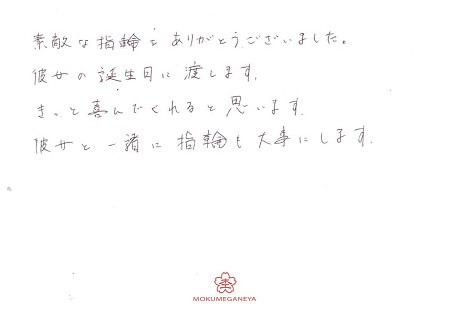 素敵な指輪をありがとうございました。
彼女の誕生日に渡します。
きっと喜んでくれると思います。
彼女と一緒に指輪も大事にします。
MOKUMEGANEYA